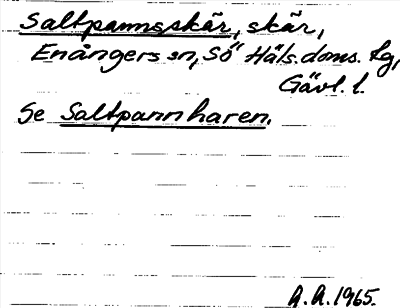 Saltpannsskär, skär,
Enångers sn, Sö Häls. doms. tg,
Gävl. l.
Se Saltpannharen.
A.A. 1965.